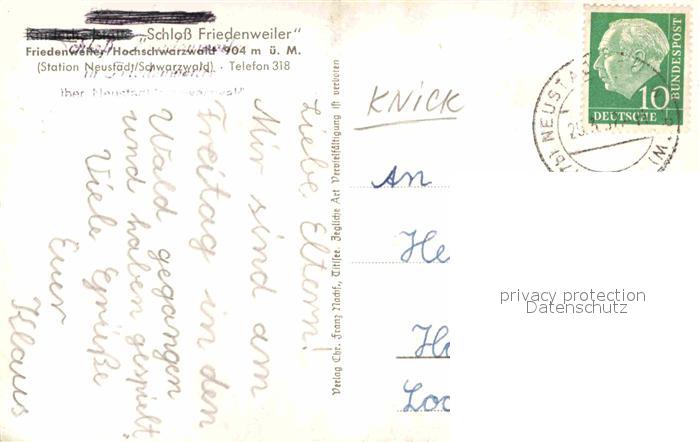 „Schloß Friedenweiler"
Friedenweiler/Hochschwarzwald 904 m ü. M.
(Station Neustadt/Schwarzwald) · Telefon 318
Liebe Eltern!
Mir sind am
Freitag in den
Wald gegangen
und haben gespielt.
Viele Grüße
Euer
Klaus
Verlag Chr. Franz Nachf., Titisee. Jegliche Art Vervielfältigung ist verboten
KNICK
An
He
H
Loc
10
DEUTSCHE
BUNDESPOST
(17b) NEUSTADT
privacy protection
Datenschutz